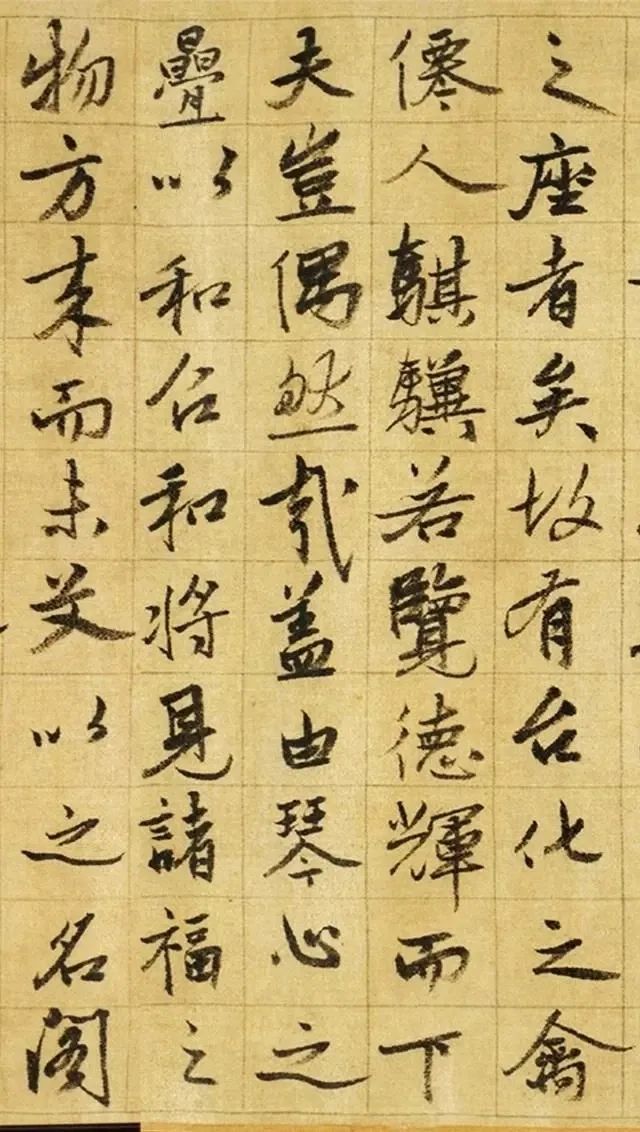 之座者矣故有台化之禽
僊人騏驥若覽德輝而下
夫豈偶然哉盖由琴心之
疊以和召和将見諸福之
物方来而未艾以之名阁